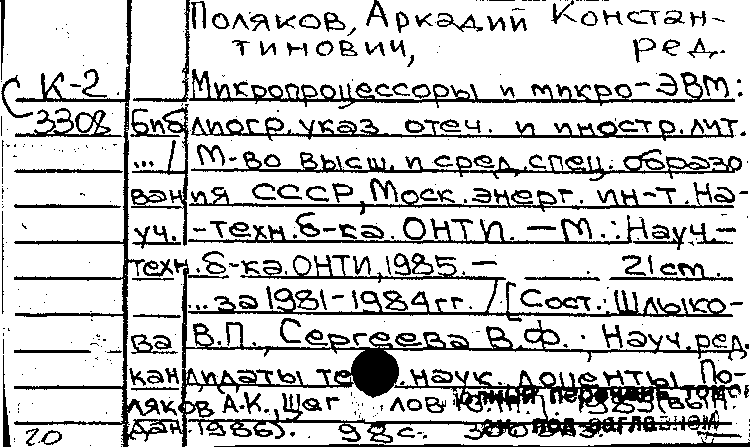 Поляков, Аркадий Констан-
тинович, ред.
К-2 Микропроцессоры и микро-ЭВМ:
3308 библиогр. указ. отеч. и иностр. лит.
... / М-во высш. и сред. спец. образо
вания СССР, Моск. энерг. ин-т. На-
уч.-техн. б-ка. ОНТИ. — М.: Науч.-
техн. б-ка. ОНТИ, 1985. — 21 cm.
... за 1981-1984 гг. / [Сост.: Шлыко-
ва В.П., Сергеева В.Ф.; Науч. ред.
кандидаты наук доценты По-
ляков А.К.,
дан 1986). 98 с.
20 см. под заглавием